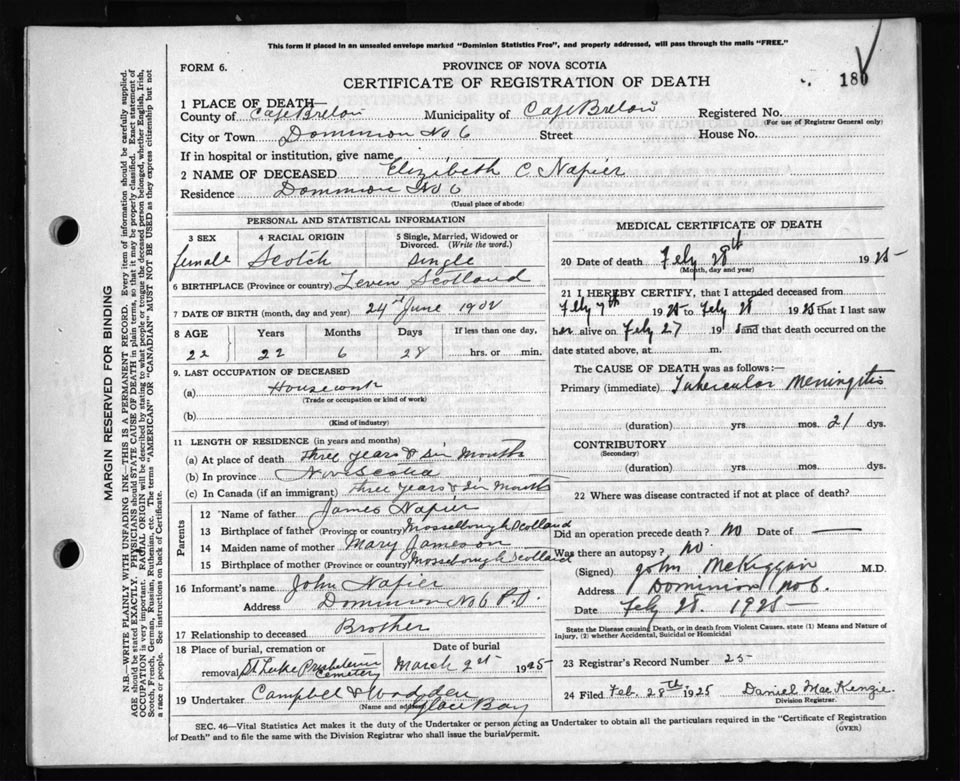 This form if placed in an unsealed envelope marked "Dominion Statistics Free", and properly addressed, will pass through the mails "FREE."
FORM 6.
PROVINCE OF NOVA SCOTIA
CERTIFICATE OF REGISTRATION OF DEATH
180
1 PLACE OF DEATH—
County of Cape Breton Municipality of Cape Breton Registered No.
(For use of Registrar General only)
City or Town Dominion No 6 Street House No.
If in hospital or institution, give name
2 NAME OF DECEASED Elizibeth C. Napier
Residence Dominion No 6
(Usual place of abode)
MARGIN RESERVED FOR BINDING
N.B.—WRITE PLAINLY WITH UNFADING INK—THIS IS A PERMANENT RECORD. Every item of information should be carefully supplied.
AGE should be stated EXACTLY. PHYSICIANS should STATE CAUSE OF DEATH in plain terms, so that it may be properly classified. Exact statement of
OCCUPATION is very important. RACIAL ORIGIN will be described by stating to what people or tongue the deceased person belonged, whether English, Irish,
Scotch, French, German, Russian, Ruthenian, etc. The terms "AMERICAN" OR "CANADIAN" MUST NOT BE USED as they express citizenship but not
a race or people. See instructions on back of Certificate.
PERSONAL AND STATISTICAL INFORMATION
3 SEX 4 RACIAL ORIGIN 5 Single, Married, Widowed or
Divorced. (Write the word.)
female Scotch single
6 BIRTHPLACE (Province or country) Leven Scotland
7 DATE OF BIRTH (month, day and year) 24 June 1902
8 AGE Years Months Days If less than one day,
22 22 6 28 hrs. or min.
9. LAST OCCUPATION OF DECEASED
(a) Housework
(Trade or occupation or kind of work)
(b)
(Kind of industry)
11 LENGTH OF RESIDENCE (in years and months)
(a) At place of death three years & six Months
(b) In province Nova Scotia
(c) In Canada (if an immigrant) three years & six Months
Parents
12 Name of father James Napier
13 Birthplace of father (Province or country) Scotland
14 Maiden name of mother Mary Jameson
15 Birthplace of mother (Province or country) Scotland
16 Informant's name John Napier
Address Dominion No 6 P.O.
17 Relationship to deceased Brother
18 Place of burial, cremation or Date of burial
removal St Luke Cemetery March 2 1925
19 Undertaker Campbell &
(Name and address) Glace Bay
MEDICAL CERTIFICATE OF DEATH
20 Date of death Feby 28th 1925
(Month, day and year)
21 I HEREBY CERTIFY, that I attended deceased from
Feby 7th 1925 to Feby 28 1925 that I last saw
her alive on Feby 27 19 and that death occurred on
date stated above, at m.
The CAUSE OF DEATH was as follows:—
Primary (immediate) Tubercular Meningitis
(duration) yrs. mos. 21 dys.
CONTRIBUTORY
(Secondary)
(duration) yrs. mos. dys.
22 Where was disease contracted if not at place of death?
Did an operation precede death? No Date of —
Was there an autopsy? No.
(Signed) John McKiggan M.D.
Address Dominion No 6.
Date Feby 28. 1925
State the Disease causing Death, or in death from Violent Causes, state (1) Means and Nature of
Injury, (2) whether Accidental, Suicidal or Homicidal
23 Registrar's Record Number 25
24 Filed Feb. 28th 1925 Daniel MacKenzie
Division Registrar.
SEC. 46—Vital Statistics Act makes it the duty of the Undertaker or person acting as Undertaker to obtain all the particulars required in the "Certificate of Registration
of Death" and to file the same with the Division Registrar who shall issue the burial permit.
(OVER)